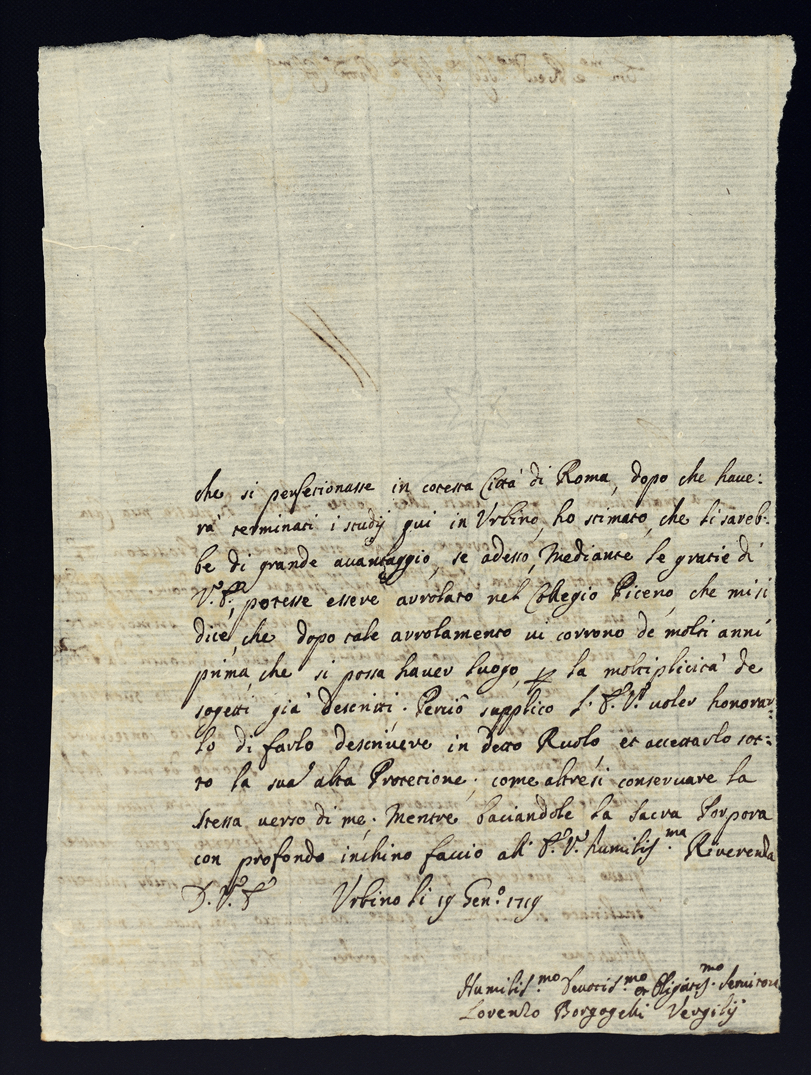 che si perfetionasse in cotesta Città di Roma, dopo che have:
rà terminati i studij qui in Urbino, ho stimato, che li sareb-
be di grande avantaggio, se adesso, Mediante le gratie di
V. E., potesse essere arrolato nel Collegio Piceno, che mi si
dice, che dopo tale arrolamento vi corrono de molti anni
prima, che si possa haver luogo, la moltiplicità de
sogetti già descritti. Perciò supplico l'E. V. voler honorar:
lo di farlo descrivere in detto Ruolo, et accettarlo sot:
to la sua alta Protetione; come altresì conservare la
stessa verso di me. Mentre baciandole la Sacra Porpora
con profondo inchino faccio all' E. V. humiliss.ma Riverenza
D. V. E. Urbino li 19 Gen.o 1719
Humiliss.mo Devotis.mo et Obligatis.mo Servitore
Lorenzo Borgogelli Vergilij